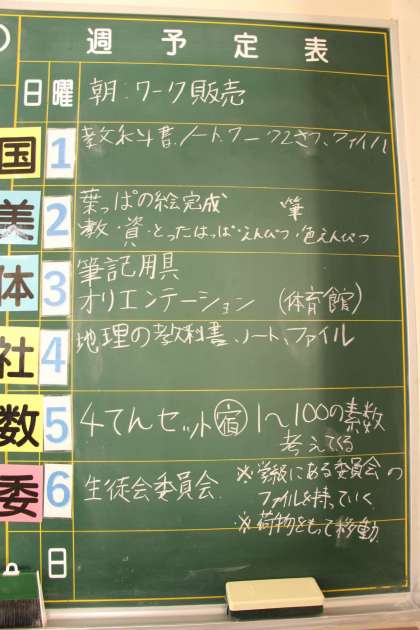 週予定表
日 曜 朝:ワーク販売
国 1 教科書、ノート、ワーク2さつ、ファイル
美 2 葉っぱの絵完成 筆
教・資・とったはっぱ・えんぴつ・色えんぴつ
体 3 筆記用具
オリエンテーション (体育館)
社 4 地理の教科書、ノート、ファイル
数 5 4てんセット 宿 1〜100の素数
考えてくる
委 6 生徒会委員会 ※学級にある委員会の
ファイルを持っていく
※荷物をもって移動
日